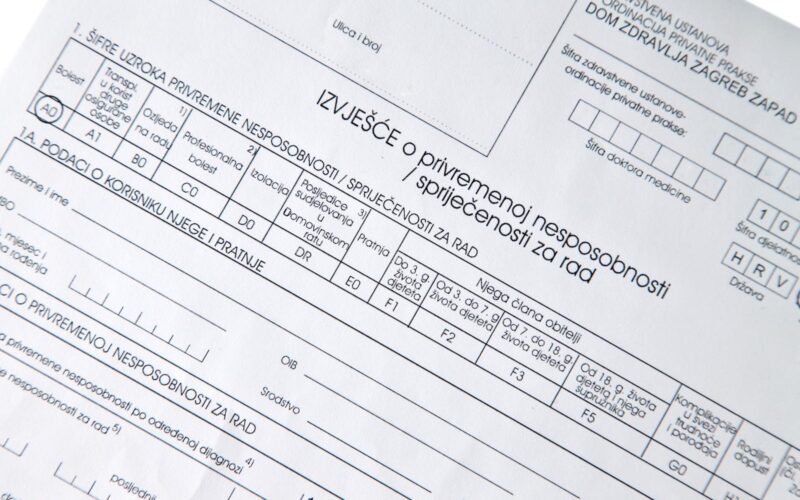 Ulica i broj
STVENA USTANOVA
ORDINACIJA PRIVATNE PRAKSE
DOM ZDRAVLJA ZAGREB ZAPAD
Šifra zdravstvene ustanove-
ordinacije privatne prakse:
Šifra doktora medicine
1 0
Šifra djelatno
H R V
Država
IZVJEŠĆE o privremenoj nesposobnosti
/ spriječenosti za rad
1. ŠIFRE UZROKA PRIVREMENE NESPOSOBNOSTI / SPRIJEČENOSTI ZA RAD
Bolest
A0
Transpl.
u korist
druge
osigurane
osobe
A1
Ozljeda 1)
na radu
B0
Profesionalna
bolest 2)
C0
Izolacija
D0
Posljedice
sudjelovanja
u
Domovinskom
ratu
DR
Pratnja 3)
E0
Njega člana obitelji
Do 3. g.
života
djeteta
F1
Od 3. do 7. g.
života djeteta
F2
Od 7. do 18. g.
života djeteta
F3
Od 18. g. života
djeteta i njega
supružnika
F5
Komplikacije
u svezi
trudnoće
i porođaja
G0
Rodiljni
dopust
1A. PODACI O KORISNIKU NJEGE I PRATNJE
Prezime i ime
MBO
mjesec i
rođenja
OIB
Srodstvo
CI O PRIVREMENOJ NESPOSOBNOSTI ZA RAD
privremene nesposobnosti po određenoj dijagnozi 4)
nesposobnosti za rad 5)
posljednji